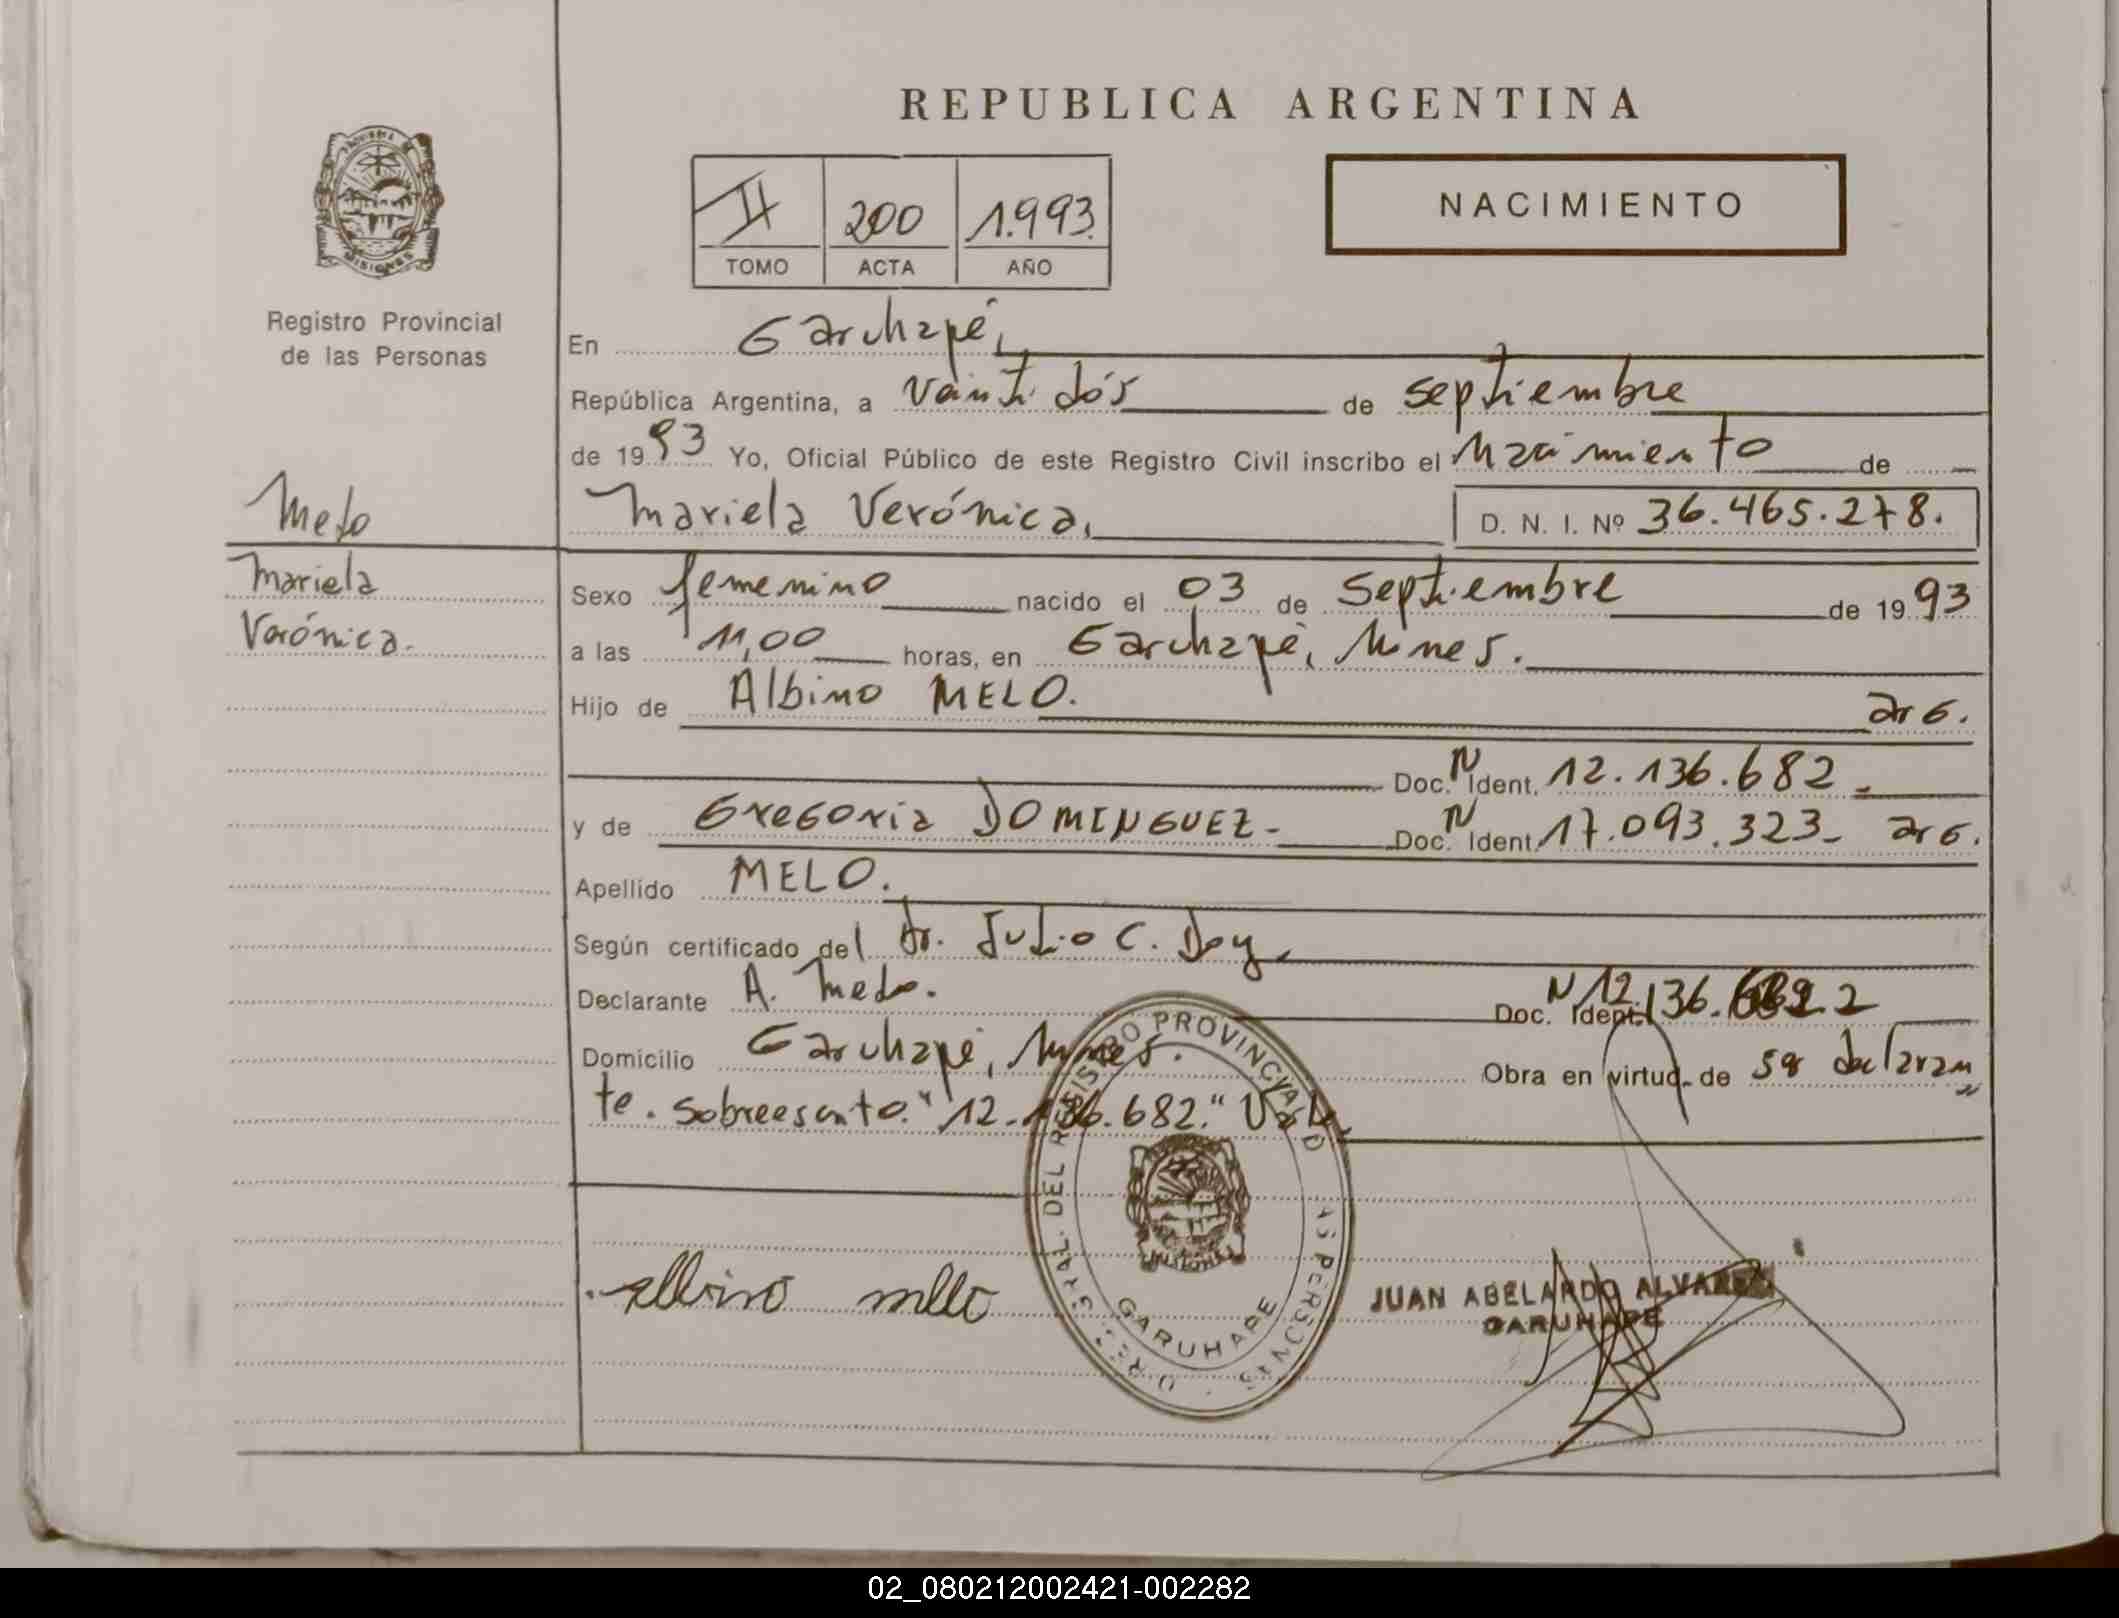 REPUBLICA ARGENTINA
MISIONES
Registro Provincial
de las Personas
II 200 1.993.
TOMO ACTA AÑO
NACIMIENTO
En Garuhapé,
República Argentina, a veinti dós de septiembre
de 1993 Yo, Oficial Público de este Registro Civil inscribo el Nacimiento de
Melo
Mariela Verónica, D. N. I. Nº 36.465.278.
Mariela
Verónica.
Sexo femenino nacido el 03 de septiembre de 1993
a las 11,00 horas, en Garuhapé, Mnes.
Hijo de Albino MELO. arg.
Doc. N Ident. 12.136.682
y de Gregoria DOMINGUEZ- Doc. N Ident. 17.093.323- arg.
Apellido MELO.
Según certificado del dr. Julio C. Doy,
Declarante A. Melo. Doc. N Ident. 12.136.682
Domicilio Garuhapé, Mnes. Obra en virtud de ser declaran
te. Sobreescrito. "12.136.682." Vale,
REGISTRO PROVINCIAL D AS PERSONAS
GARUHAPE
MISIONES
albino mello
JUAN ABELARDO ALVAREZ
GARUHAPE
02_080212002421-002282